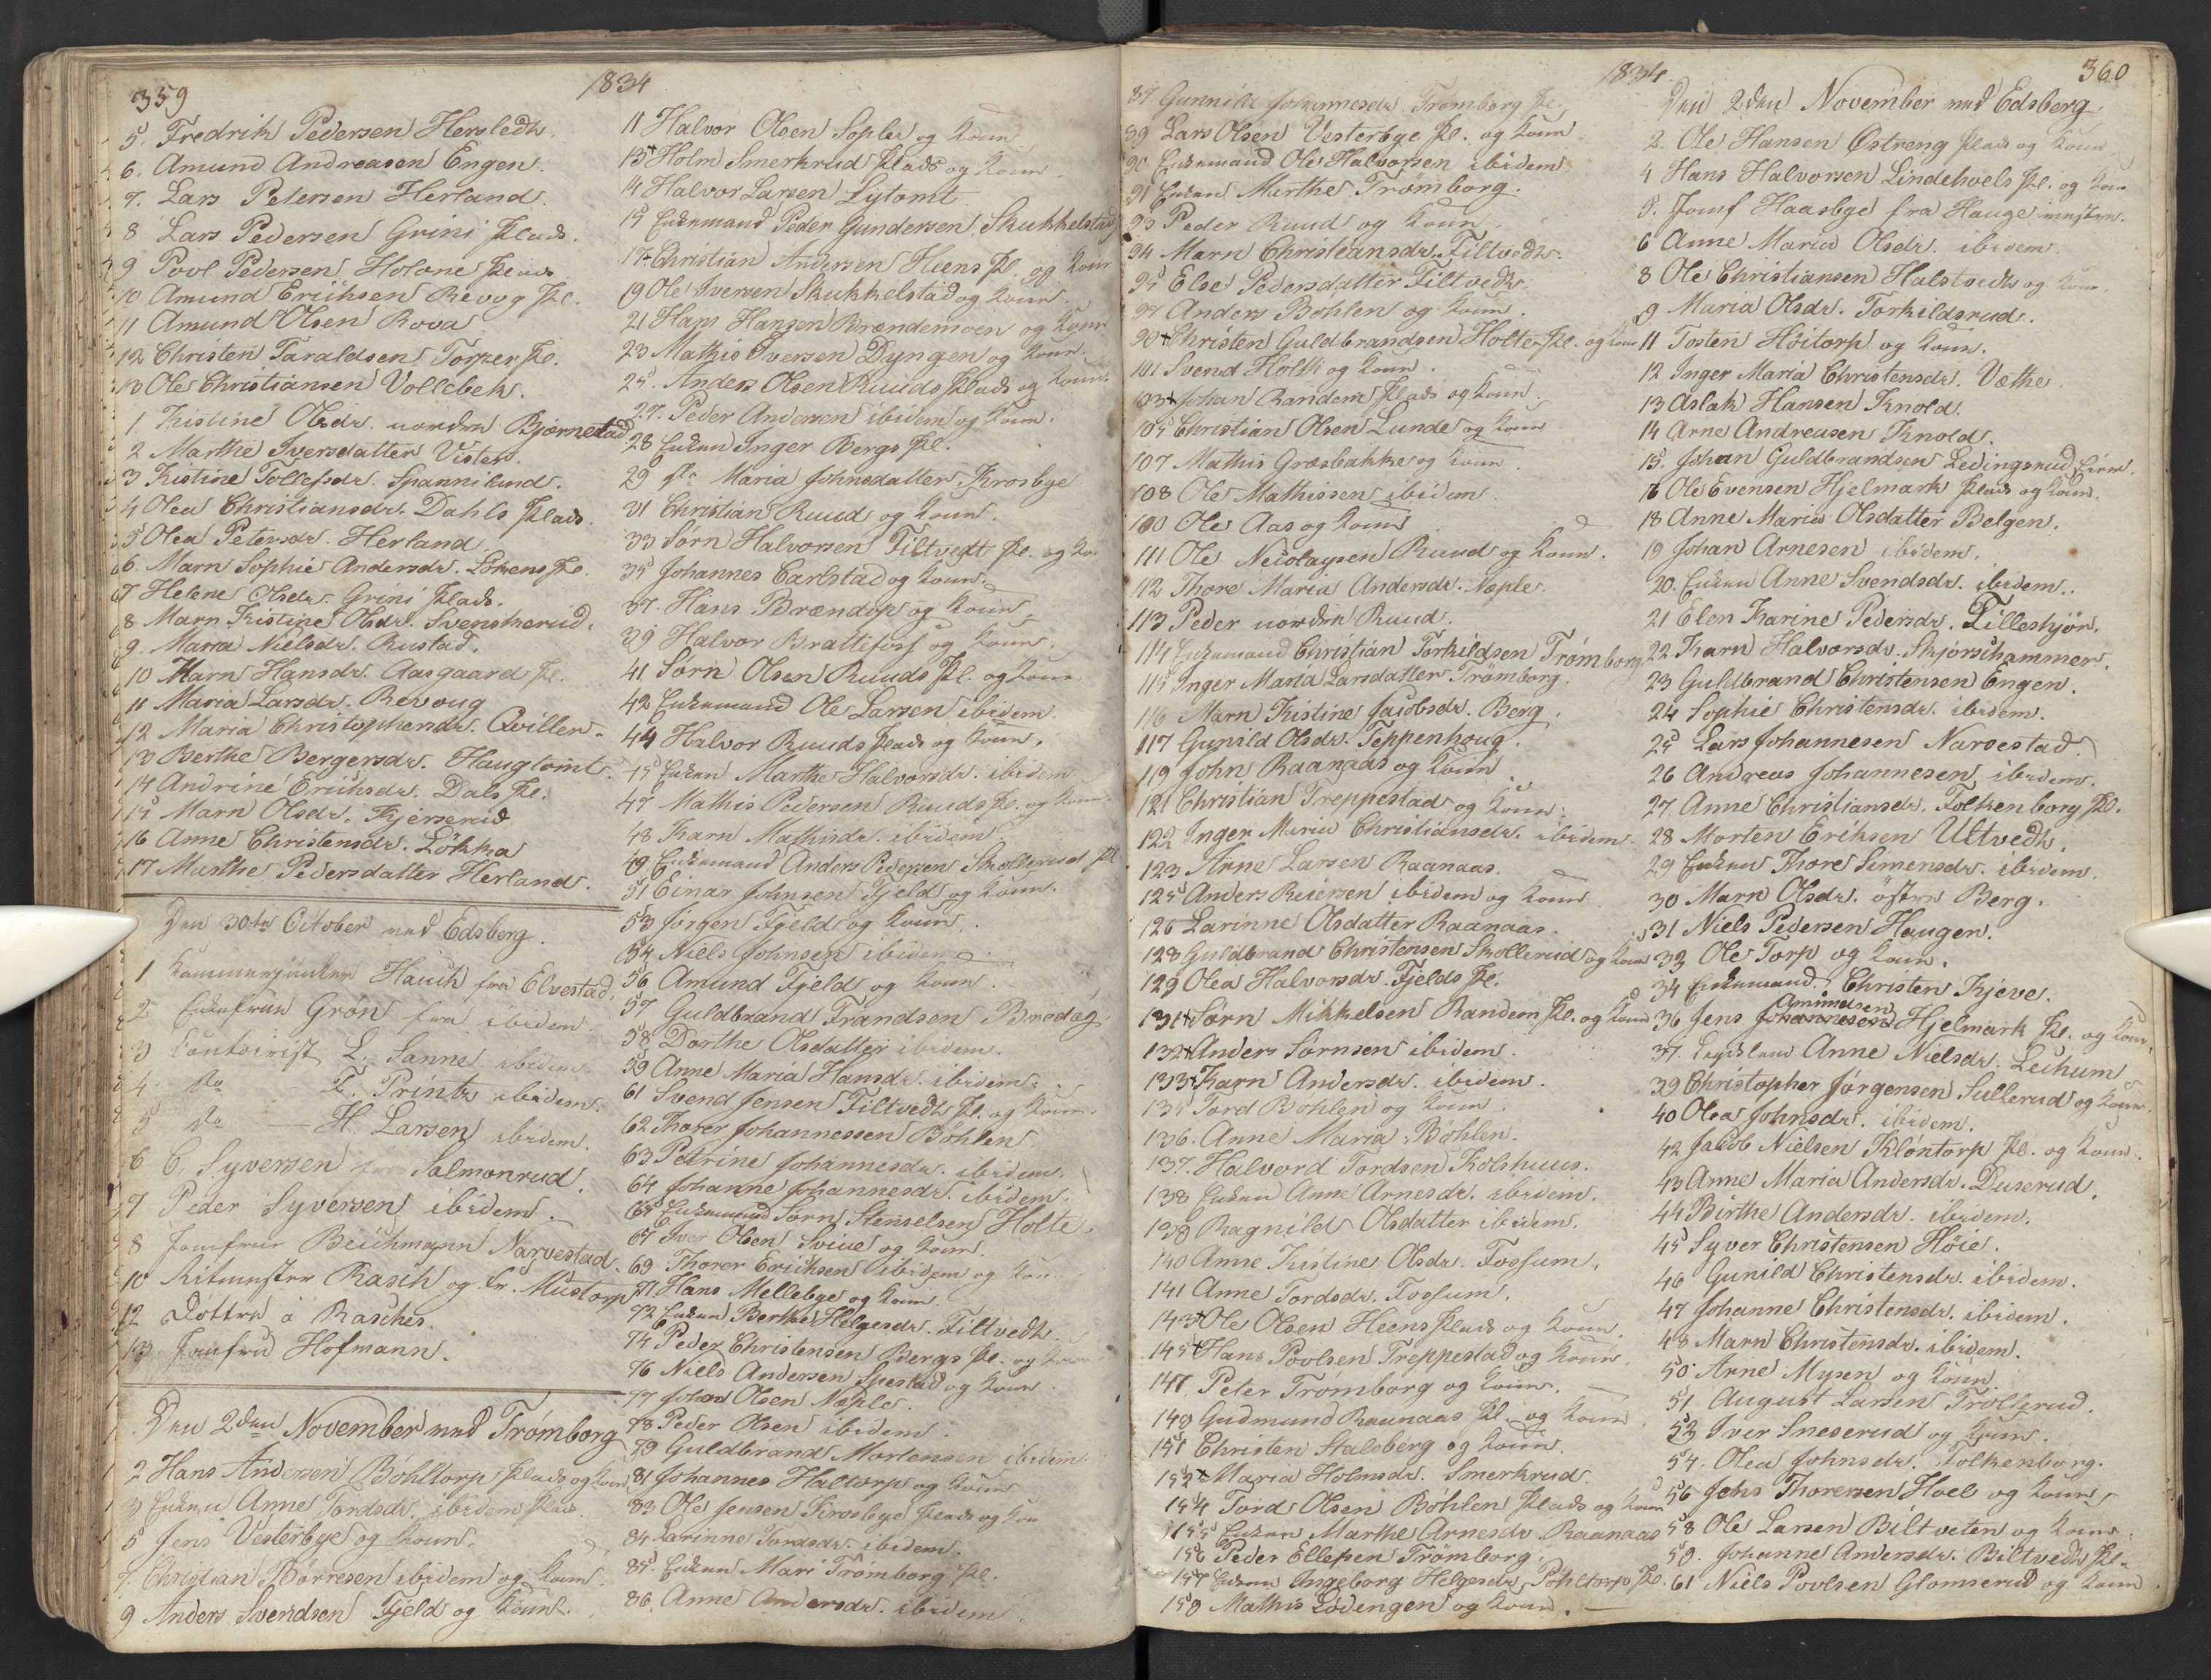 359
1834
5. Fredrik Pedersen Hersledth.
6. Amund Andreasen Engen.
7. Lars Petersen Herland.
8 Lars Pedersen Grini Plads.
9 Povl Pedersen Holone Plads
10 Amund Erichsen Revoug Pl.
11 Amund Olsen Rova
12 Christen Taraldsen Torper Pl.
13 Ole Christiansen Vollebek.
1. Kistine Olsdr. nordre Bjørnestad
2 Marthe Iversdatter Vister.
3 Kistine Tollefsdr. Spannilund.
4 Olea Christiansdr. Dahls Plads.
5 Olea Petersdr. Herland
6. Marn Sophie Andersdr. Løkens Pl.
7 Helene Olsdr. Grini Plads.
8 Marn Kistine Olsdr. Svenskerud.
9. Maria Nielsdr. Rustad.
10 Marn Hansdr. Aasgaard Pl.
11 Maria Larsdr. Revoug
12 Maria Christophersdr. Qviller.
13 Berthe Bergersdr. Haugtomt.
14 Andrine Erichsdr. Dals Pl.
15 Marn Olsdr. Kjerserud
16 Anne Christensdr. Løkka
17 Marthe Pedersdatter Herland.
Den 30te October ved Edsberg.
1 Kammerjunker Hauch fra Elvestad.
2 Enkefrue Grøn fra ibidem
3 Contoirist L. Sanne ibidem
4 do F. Printz ibidem.
5 do H. Larsen ibidem.
6 C. Syversen fra Salmonrud.
7 Peder Syversen ibidem.
8 Jomfrue Beichmann Narvestad.
10 Ritmester Rasch og Fr. Mustorp
12 Døttre a Rasches.
13 Jomfru Hofmann.
Den 2den November ved Trømborg
2 Hans Andersen Bøhltorp Plads og Kone
3 Enken Anne Tordsdr. ibidem Plads
5 Jens Vesterbye og Kone.
7. Christian Børresen ibidem og Kone.
9 Anders Svendsen Fjeld og Kone.
11 Halvor Olsen Sopler og Kone
13+ Holm Smerkrud Plads og Kone
14 Halvor Larsen Lytomt
15 Enkemand Peder Gundersen Skukkelstad
17+ Christian Andersen Heens Pl. og Kone
19 Ole Iversen Skukkelstad og Kone
21 Hans Hansen Brændemoen og Kone
23 Mathis Iversen Dyngen og Kone.
25. Anders Olsen Ruuds Plads og Kone
27. Peder Andersen ibidem og Kone.
28 Enken Inger Bergs Pl.
29 Pl. Maria Johnsdatter Krosbye
31 Christian Ruud og Kone.
33 Sørn Halvorsen Tiltvedt Pl. og Ko
35 Johannes Carlstad og Kone.
37. Hans Brændop og Kone
39 Halvor Brattifos og Kone.
41 Sørn Olsen Ruuds Pl. og Kone
42 Enkemand Ole Larsen ibidem
44 Halvor Ruuds Plads og Kone.
45 Enken Marthe Halvorsdr. ibidem
47 Mathis Pedersen Ruuds Pl. og Kone.
48 Karn Mathisdr. ibidem.
49 Enkemand Anders Pedersen Skollerud Pl
51 Einar Johnsen Fjeld og Kone.
53 Jørgen Fjeld og Kone.
54 Niels Johnsen ibidem
56 Amund Fjeld og Kone.
57 Guldbrand Frandsen Brødag
58 Dorthe Olsdatter ibidem.
59 Anne Maria Hansdr. ibidem.
61 Svend Jensen Tiltvedt Pl. og Kone.
62 Thorer Johannessen Bøhlen
63 Petrine Johannesdr. ibidem.
64 Johanne Johannesdr. ibidem.
65 Enkemand Sørn Stenselsen Holte.
67 Iver Olsen Sviue og Kone.
69 Thorer Erichsen ibidem og Kone
71 Hans Mellebye og Kone
72 Enken Berthe Helgesdr. Tiltvedt.
74 Peder Christensen Bergs Pl. og Kone
76 Niels Andersen Spestad og Kone
77 Johan Olsen Næple.
78 Peder Olsen ibidem.
79 Guldbrand Mortensen ibidem.
81 Johannes Haltorp og Kone
83 Ole Jensen Krosbye Plads og Kone
84 Larinne Tordsdr. ibidem.
85. Enken Mari Trømborg Pl.
86 Anne Andersdr. ibidem
1834
360
87 Gunnild Johannesdr. Trømborg Pl.
89 Lars Olsen Vesterbye Pl. og Kone
90 Enkemand Ole Halvorsen ibidem
91 Enken Marthe Trømborg.
93 Peder Ruud og Kone
94 Marn Christeansdr. Tiltvedt.
95 Else Pedersdatter Tiltvedt.
97 Anders Bøhlen og Kone.
99+ Christen Guldbrandsen Holte Pl. og Kone
101 Svend Holth og Kone.
103+ Johan Randem Plads og Kone.
105 Christian Olsen Lunde og Kone
107 Mathis Græsbakke og Kone.
108 Ole Mathissen ibidem.
100 Ole Aas og Kone
111 Ole Nicolaysen Ruud og Kone.
112 Thore Maria Andersdr. Næple.
113 Peder nordre Ruud.
114 Enkemand Christian Torkildsen Trømborg
115 Inger Maria Larsdatter Trømborg.
116 Marn Kistine Jacobsdr. Berg.
117 Gunild Olsdr. Teppenhoug.
119 John Raanaas og Kone
121 Christian Treppestad og Kone.
122 Inger Maria Christiansdr. ibidem
123 Arne Larsen Raanaas.
125 Anders Reiersen ibidem og Kone
126 Larinne Olsdatter Raanaas.
128 Guldbrand Christensen Skollerud og Kone
129 Olea Halvorsdr. Fjelds Pl.
131+ Sørn Mikkelsen Randem Pl. og Kone
132+ Anders Sørnsen ibidem.
133+ Karn Andersdr. ibidem.
135 Tord Bøhlen og Kone.
136. Anne Maria Bøhlen.
137. Halvord Tordsen Kolshuus.
138 Enken Anne Arnesdr. ibidem.
139 Ragnild Olsdatter ibidem.
140 Anne Kistine Olsdr. Fossum.
141 Anne Tordsdr. Fossum.
143+ Ole Olsen Heens Plads og Kone.
145+ Hans Povlsen Treppestad og Kone.
147. Peter Trømborg og Kone.
149 Gudmund Raanaas Pl. og Kone
151 Christen Stalsberg og Kone.
152+ Maria Holmsdr. Smerkrud.
154 Tord Olsen Bøhlen Plads og Kone
155 Enken Marthe Arnesdr. Raanaas
156 Peder Ellefsen Trømborg.
157 Enken Ingeborg Helgesdr. Pøhltorp Pl.
159 Mathis Lødengen og Kone.
Den 2den November ved Edsberg
2. Ole Hansen Østreng Plads og Kone
4 Hans Halvorsen Lindehoels Pl. og Kone
5. Jomf Haasbye fra Hauge
6 Anne Maria Olsdr. ibidem.
8 Ole Christiansen Halstvedt og Kone.
9 Maria Olsdr. Torkildsrud.
11 Tosten Høitorp og Kone.
12 Inger Maria Christensdr. Væthe.
13 Aslak Hansen Knold.
14 Arne Andreasen Knold.
15. Johan Guldbrandsen Ledingsrud Eiene.
16 Ole Evensen Hjelmark Plads og Kone.
18 Anne Maria Olsdatter Belgen.
19 Johan Arnesen ibidem.
20. Enken Anne Svendsdr. ibidem.
21 Elen Karine Pedersdr. Tilleshjør.
22 Karn Halvorsdr. Skjørshammer.
23 Guldbrand Christensen Engen.
24 Sophie Christensdr. ibidem.
25 Lars Johannesen Narvestad
26 Andreas Johannesen ibidem.
27. Anne Christiansdr. Folkenborg Pl.
28 Morten Erichsen Ultvedt.
29 Enken Thore Simensdr. ibidem.
30 Marn Olsdr. østre Berg.
31 Niels Pedersen Haugen.
33 Ole Torp og Kone.
34 Enkemand Christen Kjeve.
36 Jens Johannesen Amundsen Hjelmark Pl. og Kone.
37. Anne Nielsdr. Lechum
39 Christopher Jørgensen Sullerud og Kone.
40 Olea Johnsdr. ibidem.
42 Jacob Nielsen Kløntorp Pl. og Kone.
43 Anne Maria Andersdr. Duserud.
44 Birthe Andersdr. ibidem.
45 Syver Christensen Høie.
46 Gunild Christensdr. ibidem.
47 Johanne Christensdr. ibidem.
48 Marn Christensdr. ibidem.
50 Arne Mysen og Kone
51 August Larsen Trollerud.
53 Iver Sneserud og Kone.
54. Olea Johnsdr. Folkenborg.
56 Jens Thoresen Hoel og Kone
58 Ole Larsen Biltveten og Kone.
59. Johanne Andersdr. Biltvedt Pl.
61 Niels Povlsen Glomserud og Kone